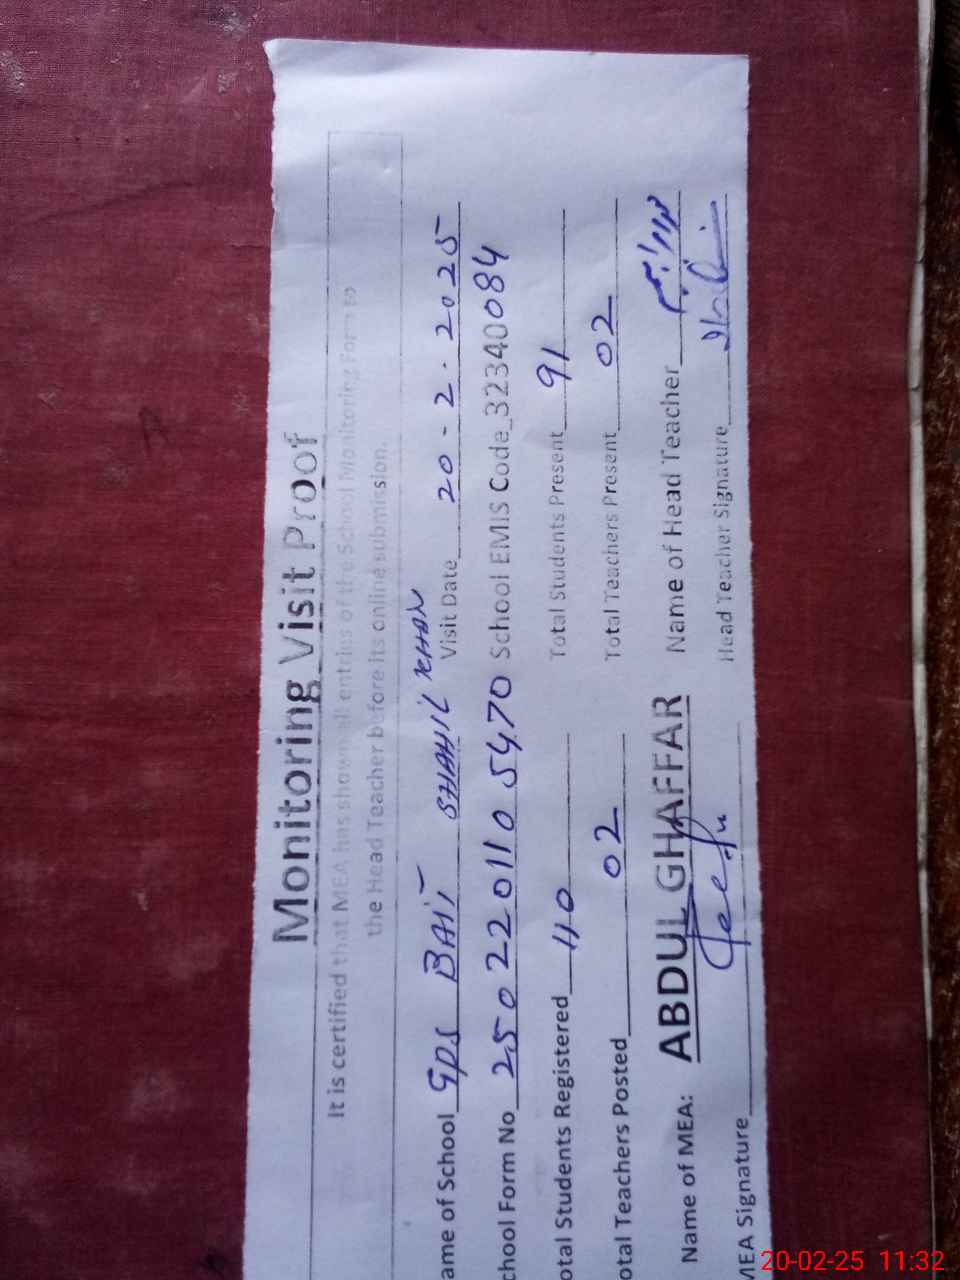 Monitoring Visit Proof
It is certified that MEA has shown all entries of the School Monitoring Form to
the Head Teacher before its online submission.
ame of School GPS BAIT SHAHIL KHAN Visit Date 20-2.2025
chool Form No 2502201105470 School EMIS Code 32340084
otal Students Registered 110 Total Students Present 91
otal Teachers Posted 02 Total Teachers Present 02
Name of MEA: ABDUL GHAFFAR Name of Head Teacher
MEA Signature Head Teacher Signature
20-02-25 11:32